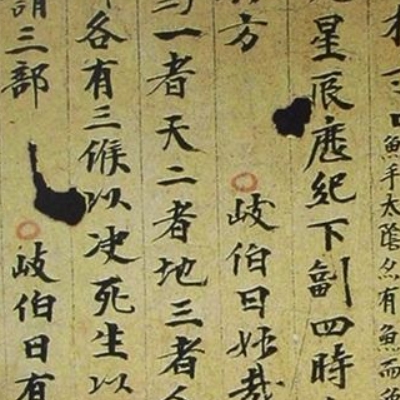 魚手太陰
星辰厯紀下副四時
方 岐伯曰妙哉
一者天二者地三者
各有三候以决死生以
三部 岐伯曰有